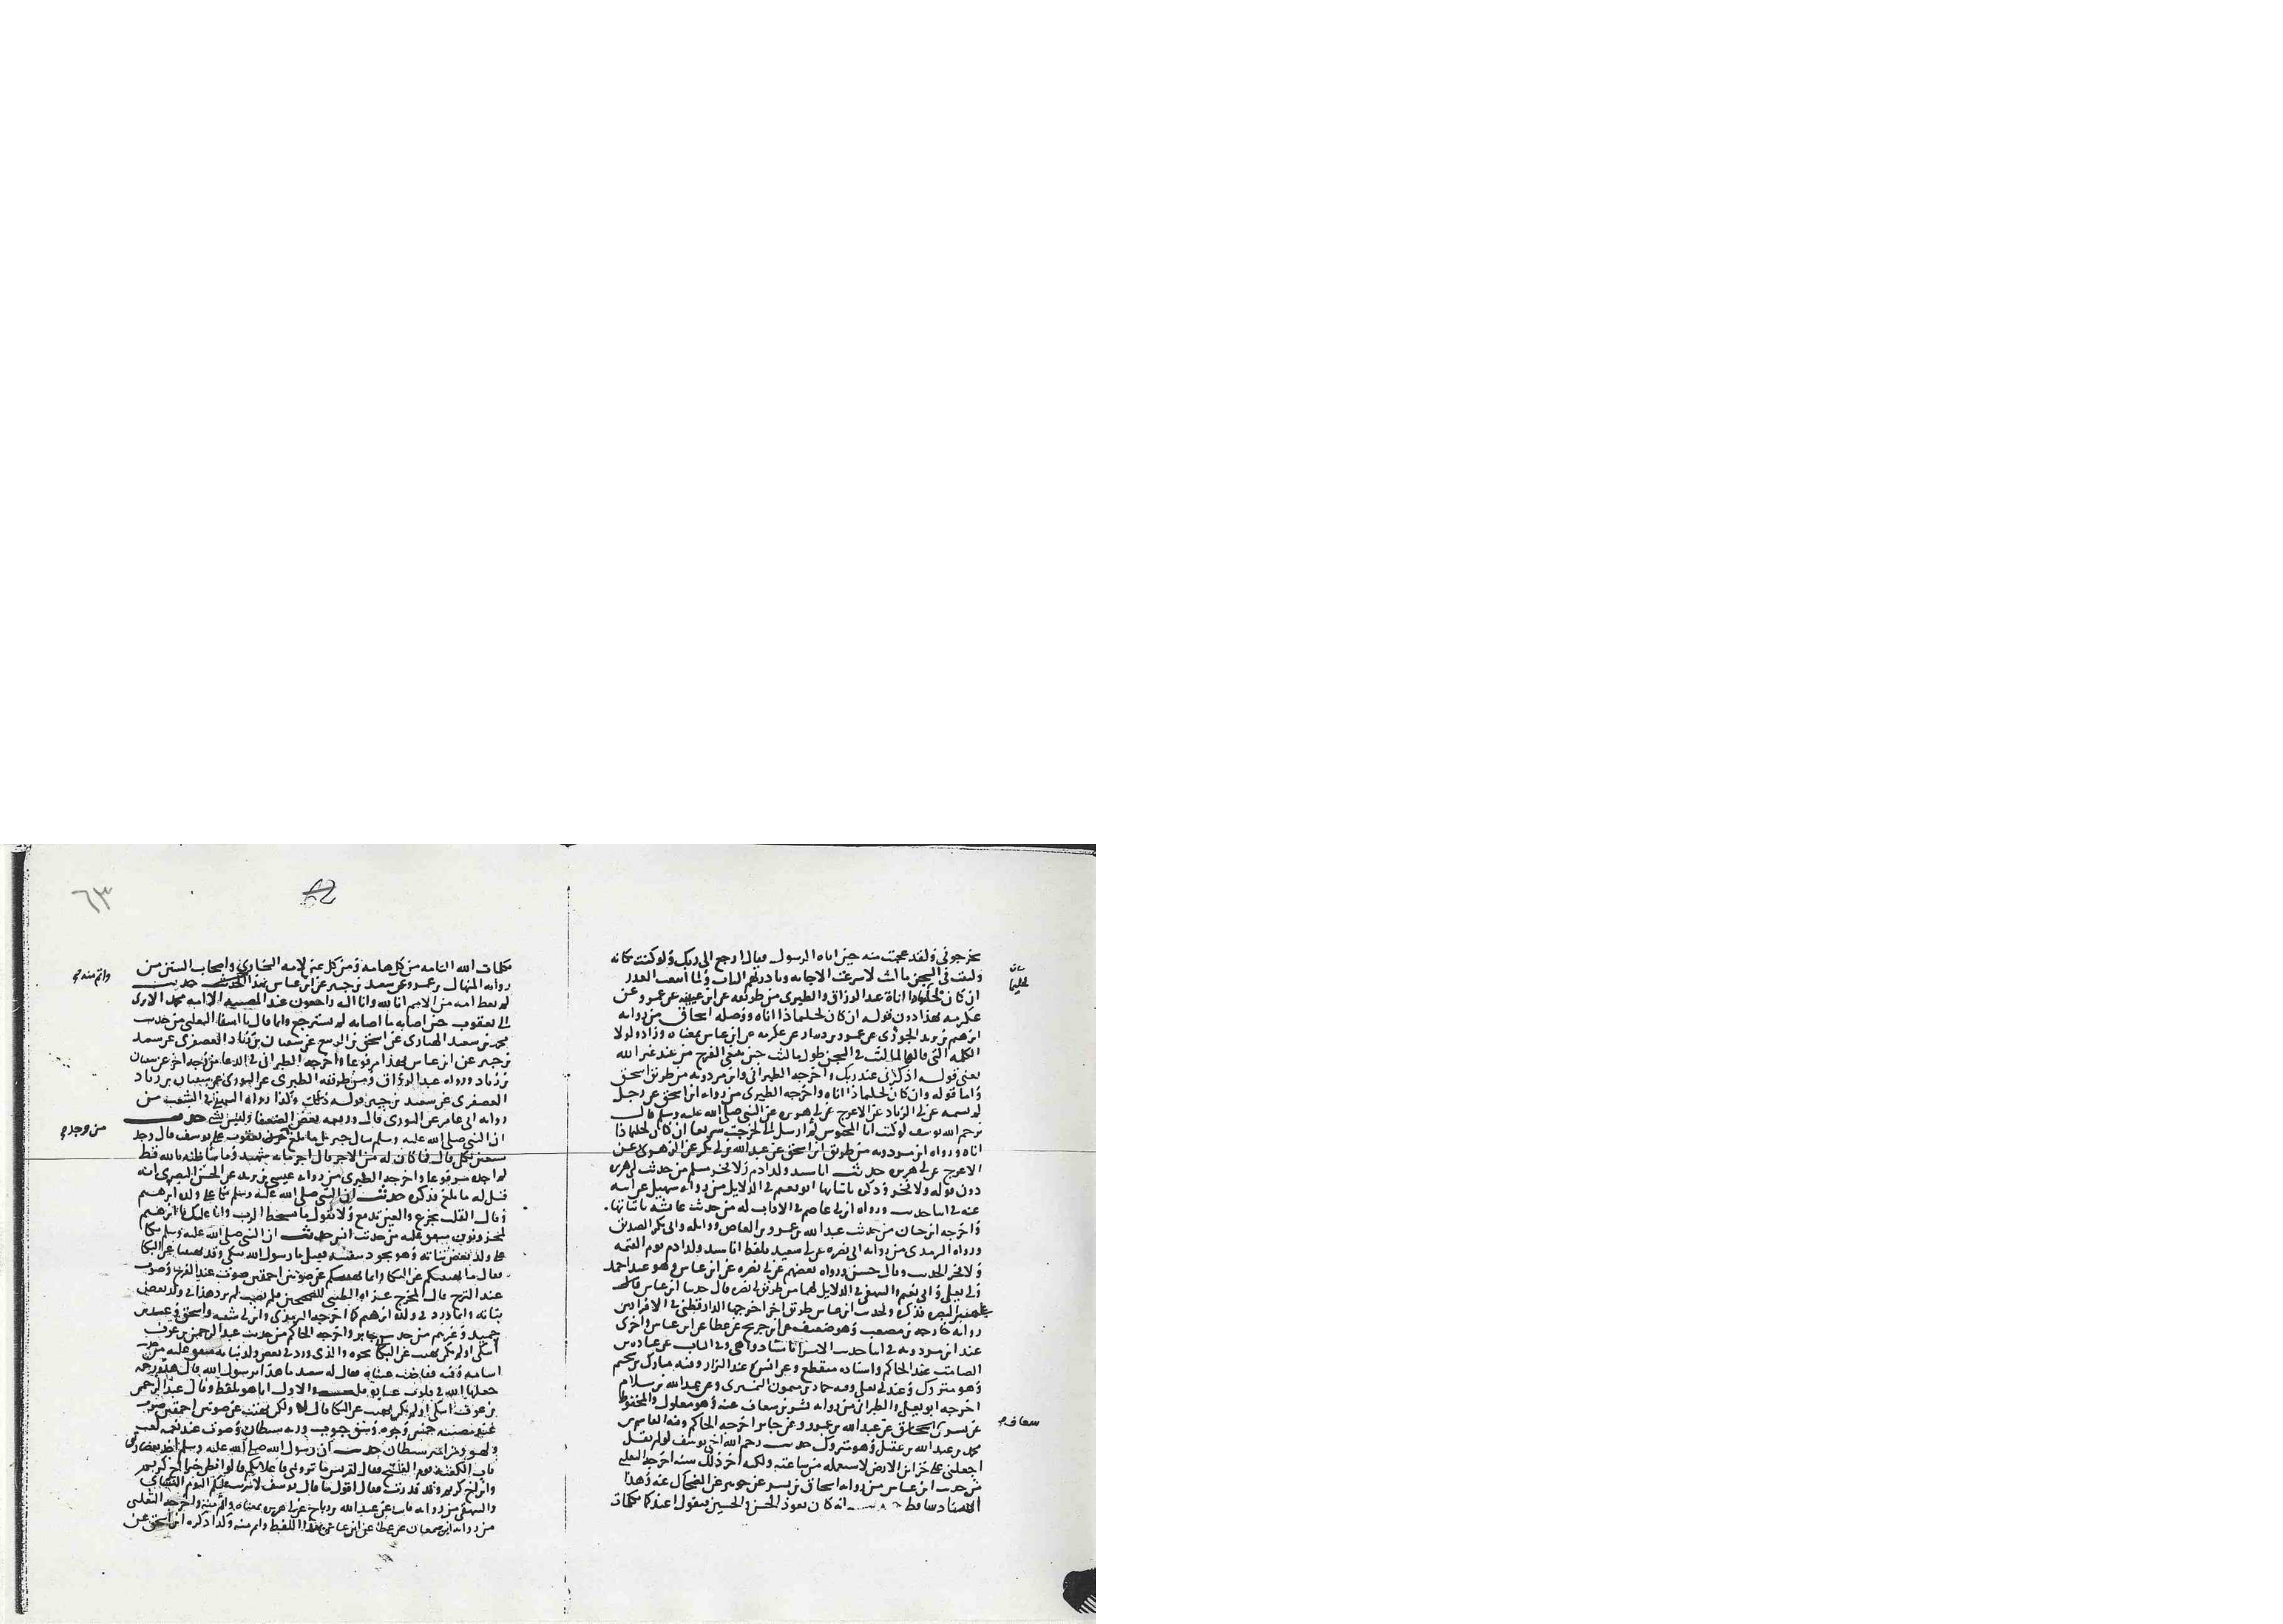 يخرجوني ولقد عجبت منه حين اتاه الرسول فقال ارجع الى ربك ولو كنت مكانه
ولبثت في السجن ما لبث لاسرعت الاجابه وبادرتهم الباب ولما ابتغيت العذر
ان كان لحليما ذا اناة عبد الرزاق والطبري من طريقه عن ابن عيينه عن عمرو عن
عكرمه بهذا دون قوله ان كان لحليما ذا اناه ووصله اسحاق من روايه
ابرهيم بن يزيد الجوزي عن عمرو بن دينار عن عكرمه عن ابن عباس بمعناه وزاد ولولا
الكلمه التي قالها لما لبث في السجن طول ما لبث حين يبتغي الفرج من عند غير الله
يعني قوله اذكرني عند ربك واخرجه الطبراني وابن مردويه من طريق اسحق
واما قوله وان كان لحليما ذا اناه واخرجه الطبري من روايه ابن اسحق عن رجل
لم يسمه عن ابي الزناد عن الاعرج عن ابي هريره عن النبي صلى الله عليه وسلم قال
يرحم الله يوسف لو كنت انا المحبوس ثم ارسل الي لخرجت سريعا ان كان لحليما ذا
اناه ورواه ابن مردويه من طريق ابن اسحق عن عبد الله بن ابي بكر عن الزهري عن
الاعرج عن ابي هريره حديث انا سيد ولد ادم ولا فخر مسلم من حديث ابي هريره
دون قوله ولا فخر وذكره باثباتها ابو نعيم في الدلايل من روايه سهيل عن ابيه
عنه في اثنا حديث ورواه ابن ابي عاصم في الاداب له من حديث عائشه باثباتها
واخرجه ابن حبان من حديث عبد الله بن عمرو بن العاص وواثله وابي بكر الصديق
ورواه الترمذي من روايه ابي نضره عن ابي سعيد بلفظ انا سيد ولد ادم يوم القيمه
ولا فخر الحديث وقال حسن ورواه بعضهم عن ابي نضره عن ابن عباس وهو عند احمد
وابي يعلى وابي نعيم والبيهقي في الدلايل لهما من طريق ابي نضره قال خطبنا ابن عباس
على منبر البصره فذكره ولحديث ابن عباس طريق اخر اخرجها الدارقطني في الافراد من
روايه خارجه بن مصعب وهو ضعيف عن ابن جريج عن عطا عن ابن عباس واخرى
عند ابن مردويه في اثنا حديث الاسرا باسناد واهي وفي الباب عن عباده بن
الصامت عند الحاكم واسناده منقطع وعن انس عند البزار وفيه مبارك بن سحيم
وهو متروك وعند ابي يعلى وفيه حماد بن ميمون وعن عبد الله بن سلام
اخرجه ابو يعلى والطبراني من روايه بشر بن شعاف عنه وهو معلول والمحفوظ
عن بشر عن عبد الله بن عمرو وعن جابر اخرجه الحاكم وفيه القاسم بن
محمد بن عبد الله بن عقيل وهو متروك حديث رحم الله اخي يوسف لو لم يقل
اجعلني على خزائن الارض لاستعمله من ساعته ولكنه اخر ذلك سنه اخرجه الثعلبي
من حديث ابن عباس من روايه اسحاق بن بشر عن جويبر عن الضحاك عنه وهذا
الاسناد ساقط حديث انه كان يعوذ الحسن والحسين فيقول اعيذكما بكلمات
٦٣
بكلمات الله التامه من كل هامه ومن كل عين لامه البخاري واصحاب السنن من
روايه المنهال بن عمرو عن سعيد بن جبير عن ابن عباس بهذا الحديث حديث
لم يعط امه من الامم انا لله وانا اليه راجعون عند المصيبه الا امه محمد الا ترى
الى يعقوب حين اصابه ما اصابه لم يسترجع وانما قال يا اسفا الثعلبي من حديث
محمد بن سعيد عن اسحق بن الربيع عن سفيان بن زياد العصفري عن سعيد
بن جبير عن ابن عباس بهذا مرفوعا واخرجه الطبراني في الدعا من وجه اخر عن سفيان
بن زياد ورواه عبد الرزاق ومن طريقه الطبري عن الثوري عن سفيان بن زياد
العصفري عن سعيد بن جبير قوله وكذا رواه البيهقي في الشعب من
روايه ابي عامر عن الثوري قال ورفعه بعض الضعفا وليس بشي حديث
ان النبي صلى الله عليه وسلم سال جبريل ما بلغ من حزن يعقوب على يوسف قال وجد
سبعين ثكلى قال فما كان له من الاجر قال اجر مايه شهيد وما ساظنه بالله قط
لم اجده مرفوعا واخرجه الطبري من روايه عيسى بن يزيد عن الحسن البصري انه
قيل له ما بلغ فذكره حديث ان النبي صلى الله عليه وسلم بكا على ولده ابرهيم
وقال القلب يجزع والعين تدمع ولا نقول ما يسخط الرب وانا عليك يا ابرهيم
لمحزونون متفق عليه من حديث انس حديث ان النبي صلى الله عليه وسلم بكا
على ولد بعض بناته وهو يجود بنفسه فقيل يا رسول الله تبكي وقد نهيتنا عن البكا
فقال ما نهيتكم عن البكا وانما نهيتكم عن صوتين احمقين صوت عند الفرح وصوت
عند الترح قال المخرج عزاه الطيبي للصحيحين ولم يصب لم يرد هذا في ولد بعض
بناته وانما ورد في ولده ابرهيم كما اخرجه الترمذي وابن ابي شيبه واسحق وعبد بن
حميد وغيرهم من حديث جابر واخرجه الحاكم من حديث عبد الرحمن بن عوف
اتبكي اولم تكن نهيت عن البكا نحوه والذي ورد في بعض ولد بناته متفق عليه من حديث
اسامه وفيه ففاضت عيناه فقال له سعد ما هذا يا رسول الله قال هذه رحمه
جعلها الله في قلوب عباده والاول انما هو بلفظ وقال عبد الرحمن
بن عوف اتبكي اولم تكن نهيت عن البكا قال لا ولكن نهيت عن صوتين احمقين صوت
عند مصيبه خمش وجوه وشق جيوب ورنه شيطان وصوت عند نغمه لعب
ولهو ومزامير شيطان حديث ان رسول الله صلى الله عليه وسلم اخذ بعضادتي
باب الكعبه يوم الفتح فقال لقريش ما تروني فاعلا بكم قالوا نظن خيرا اخ كريم
وابن اخ كريم وقد قدرت فقال اقول ما قال يوسف لا تثريب عليكم اليوم النسائي
والبيهقي من روايه ثابت عن عبد الله بن رباح عن ابي هريره بمعناه واتم منه واخرجه الثعلبي
من روايه ابن سمعان عن عطا عن ابن عباس بهذا اللفظ واتم منه وكذا ذكره ابن اسحق عن
واتم منه
من وجد